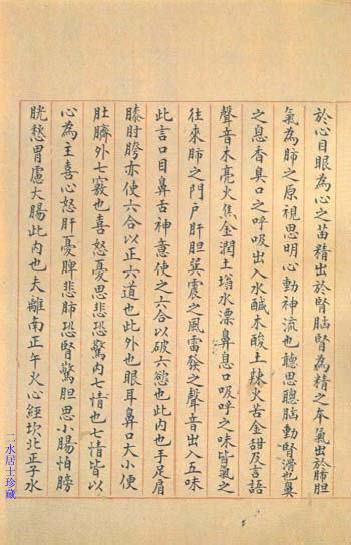 於心目眼為心之苗精出於腎腦腎為精之本氣出於肺胆
氣為肺之原視思明心動神流也聽思聰腦動腎滑也鼻
之息香臭口之呼吸出入水鹹木酸土辣火苦金甜及言語
聲音木亮火焦金潤土塕水漂鼻息口吸呼之味皆氣之
往來肺之門户肝胆巽震之風雷發之聲音出入五味
此言口目鼻舌神意使之六合以破六慾也此内也手足肩
膝肘胯亦使六合以正六道也此外也眼耳鼻口大小便
肚臍外七竅也喜怒憂思悲恐驚内七情也七情皆以
心為主喜心怒肝憂脾悲肺恐腎驚胆思小腸怕膀
胱愁胃慮大腸此内也夫離南正午火心經坎北正子水
二水居士珍藏